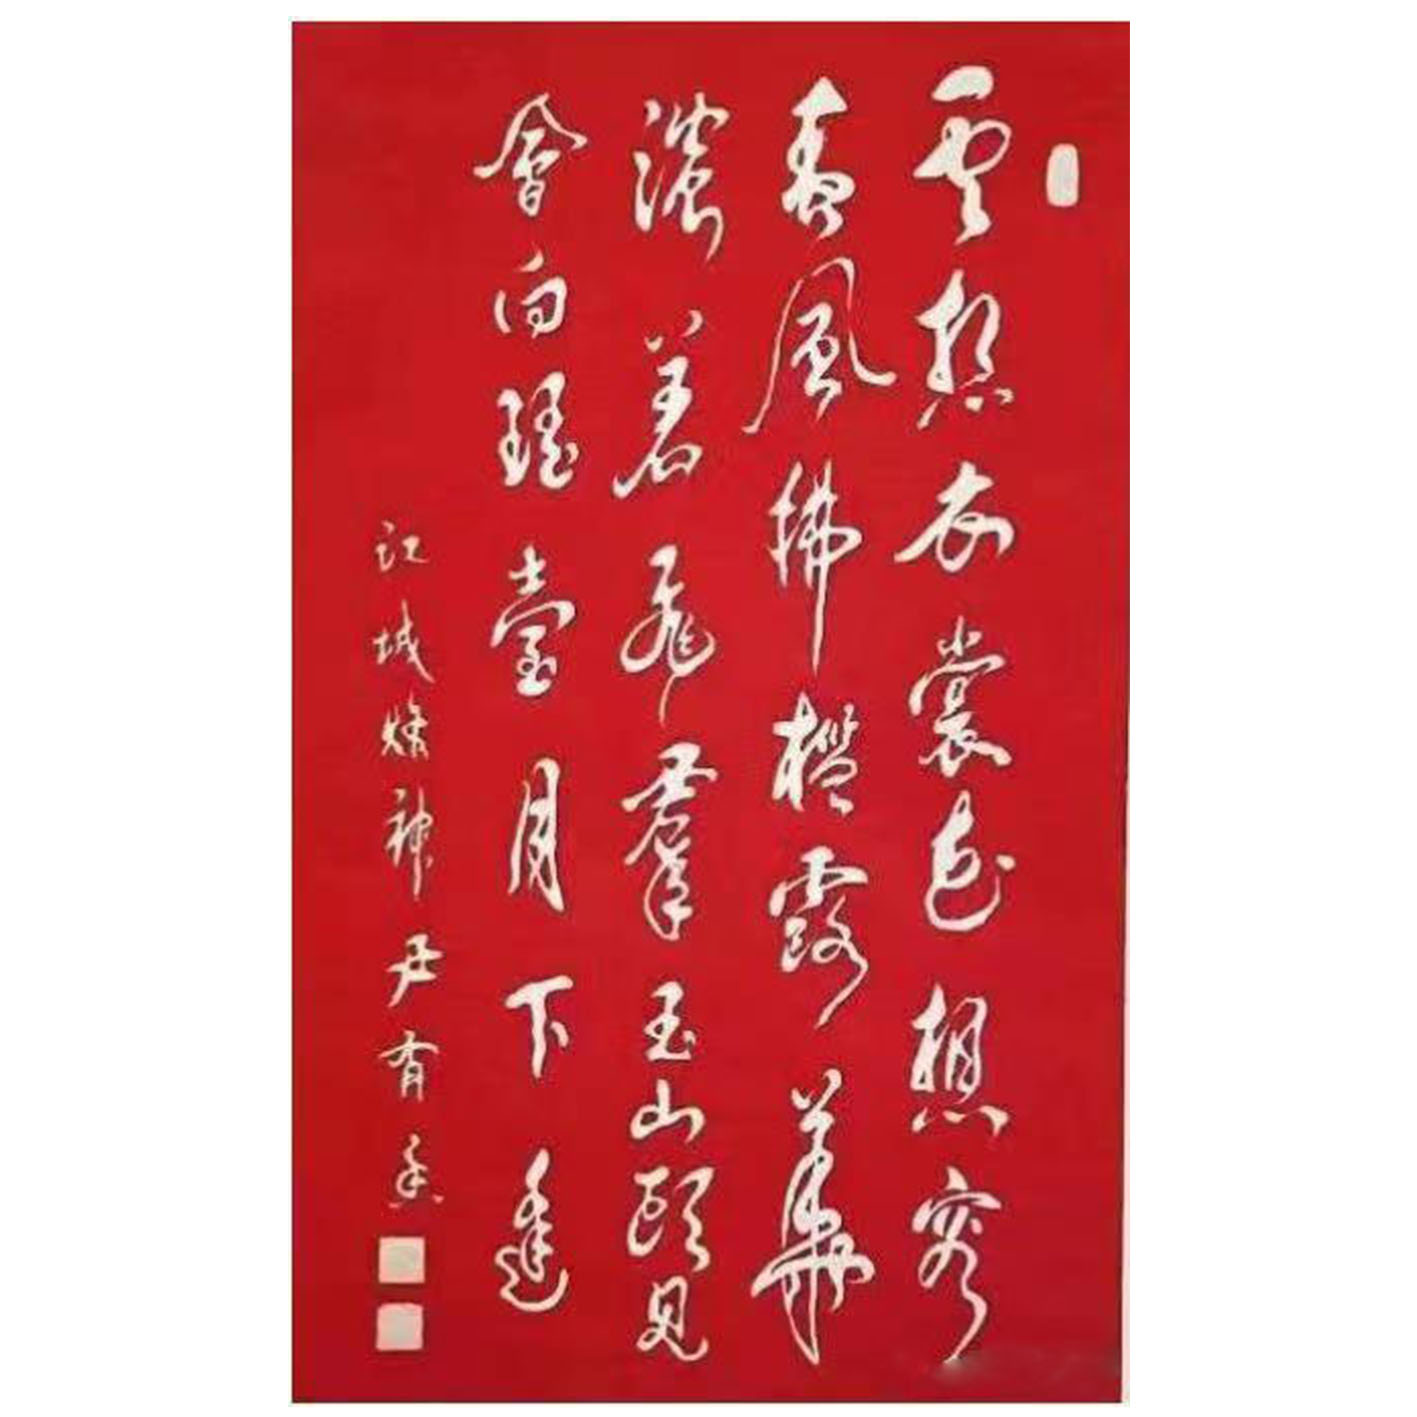 雲想衣裳花想容
春風拂檻露華
濃若非羣玉山頭見
會向瑤臺月下逢
江城神尹有